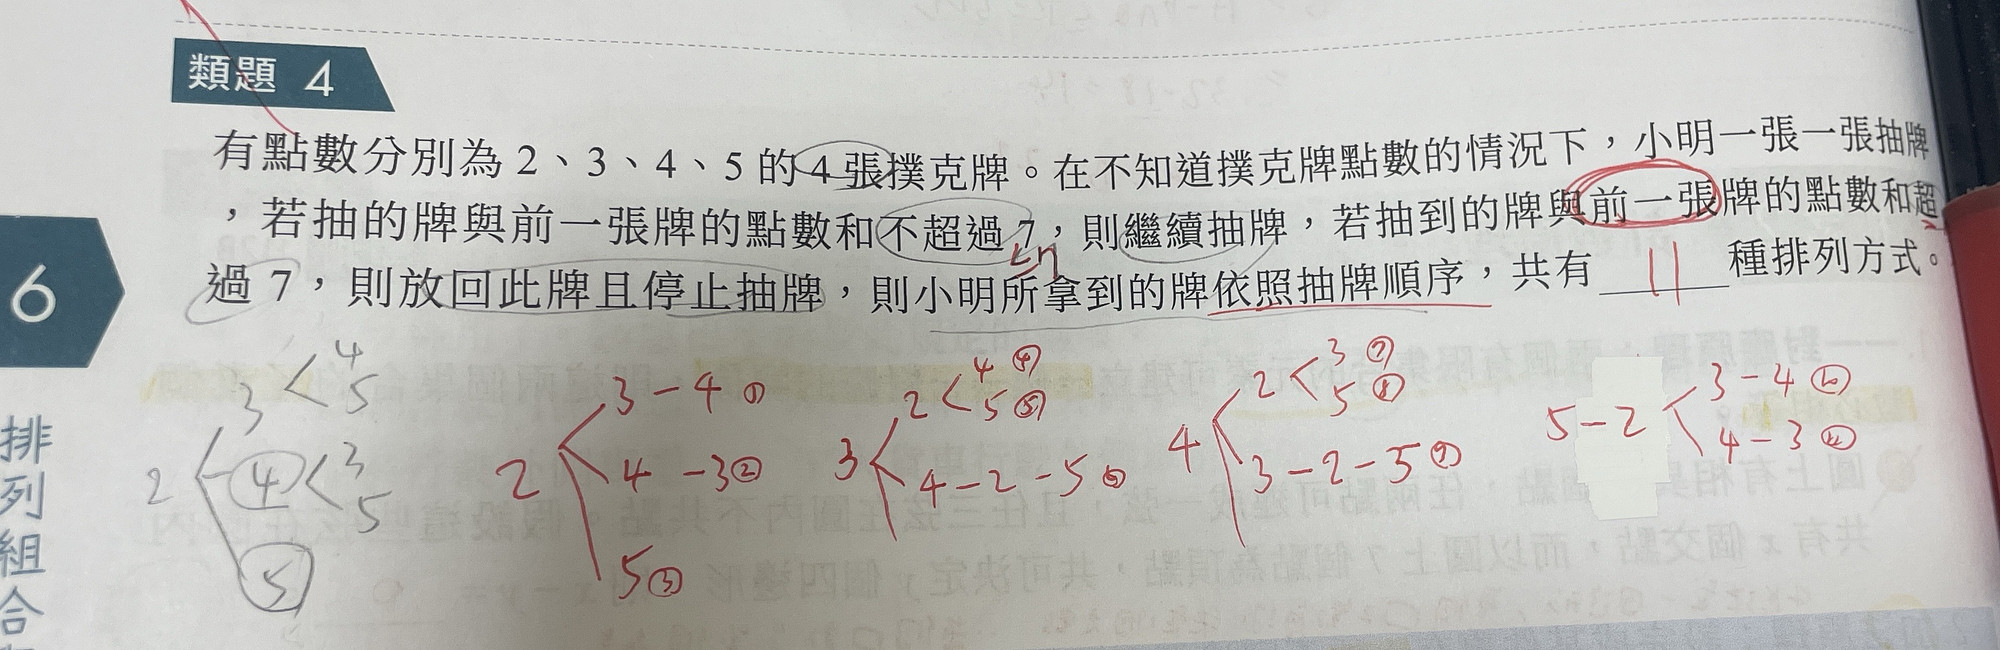 類題 4
有點數分別為 2、3、4、5 的 4 張撲克牌。在不知道撲克牌點數的情況下，小明一張一張抽牌
，若抽的牌與前一張牌的點數和不超過 7，則繼續抽牌，若抽到的牌與前一張牌的點數和超
過 7，則放回此牌且停止抽牌，則小明所拿到的牌依照抽牌順序，共有 11 種排列方式。
6
排列組合
2 3 4 5
4 3 5
5
2 3-4 ①
4-3 ②
5 ③
3 2 4 ④
5 ⑤
4-2-5 ⑥
4 2 3 ⑦
5 ⑧
3-2-5 ⑨
5-2 3-4 ⑩
4-3 ⑪